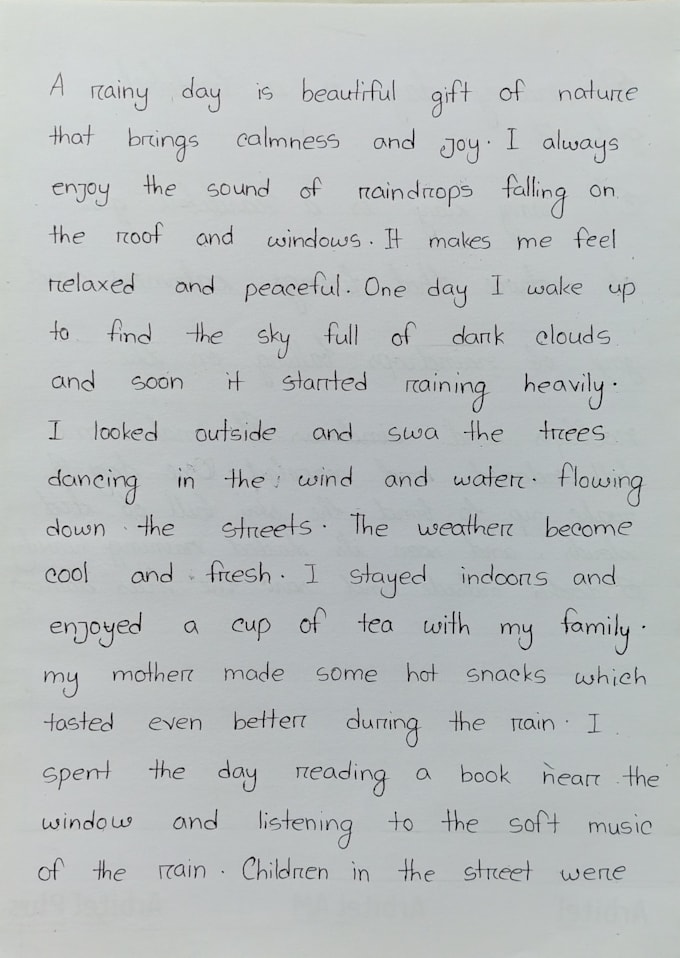 A rainy day is beautiful gift of nature
that brings calmness and joy. I always
enjoy the sound of raindrops falling on
the roof and windows. It makes me feel
relaxed and peaceful. One day I wake up
to find the sky full of dark clouds
and soon it started raining heavily.
I looked outside and swa the trees
dancing in the wind and water. flowing
down the streets. The weather become
cool and fresh. I stayed indoors and
enjoyed a cup of tea with my family.
my mother made some hot snacks which
tasted even better during the rain. I
spent the day reading a book near the
window and listening to the soft music
of the rain. Children in the street were